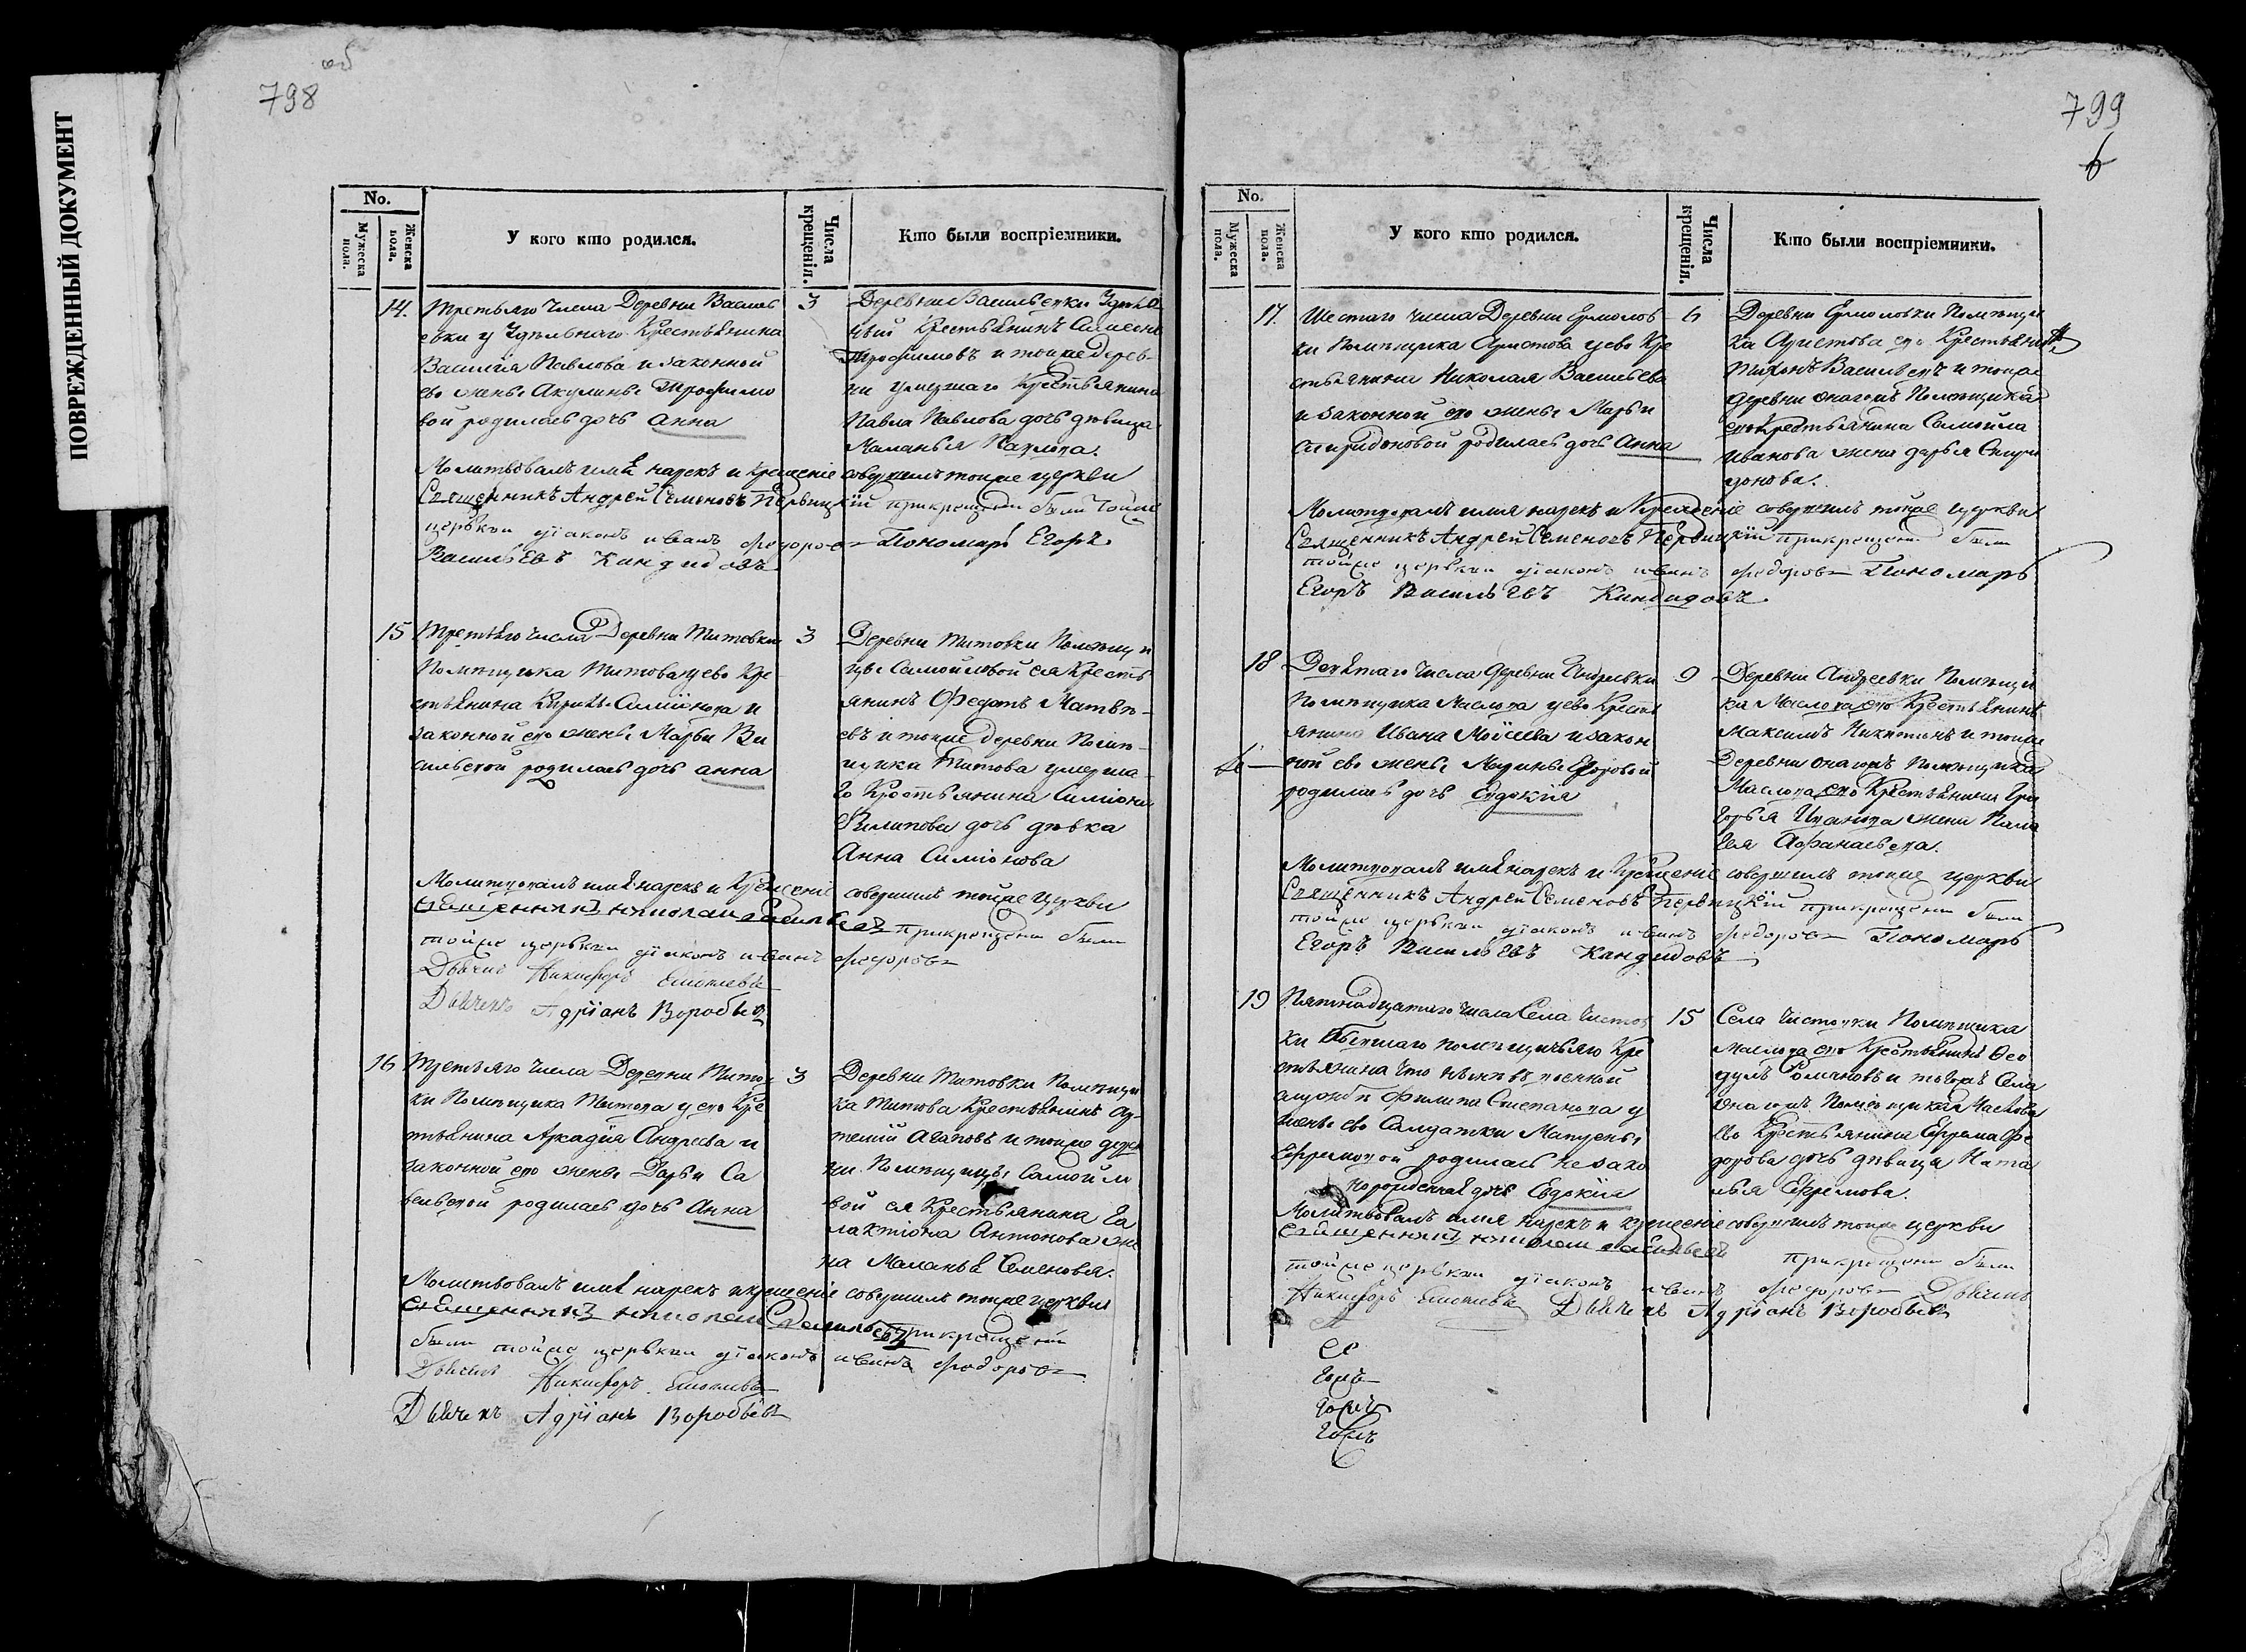 ПОВРЕЖДЕННЫЙ ДОКУМЕНТ
798 об
No.
Мужеска пола.
Женска пола.
У кого кто родился.
Числа крещенія.
Кто были воспріемники.
14.
Третьяго числа Деревни Василь
евки у Удѣльнаго Крестьянина
Василія Павлова и законной
ево жены Акулины Трофимо
вой родилась дочь Анна
3
Деревни Васильевки Удѣль
ный Крестьянинъ
Трофимовъ и тоиже дерев-
ни Крестьянина
Павла Павлова дочь дѣвица
Маланья Павлова.
Молитвовалъ имя нарекъ и крещеніе совершилъ тоиже церкви
Священникъ Андрей Семеновъ Первицкій при крещеніи были тойже
церькви діаконъ иванъ федоровъ Пономарь Егоръ
Васильевъ Кандидовъ
15
Третьяго числа Деревни Титовки
Помѣщика Титова у ево Кре
стьянина и
законной его жены Марьи Ва
сильевой родилась дочь анна
3
Деревни Титовки Помѣщи
цы Самойловой ея Кресть
янинъ Федотъ Матвѣ-
евъ и тоиже деревни Помѣ-
щика Титова умерша-
го Крестьянина Симіона
Филипова дочь дѣвка
Анна Симіонова
Молитвовалъ имя нарекъ и Крещеніе совершилъ тоиже Церкви
священникъ николаи васильевъ при крещеніи были
тойже церькви діаконъ иванъ федоровъ
Дьячекъ Никифоръ
Дьячекъ Адріанъ Воробьевъ
16
Третьяго числа Деревни Титов
ки Помѣщика Титова у его Кре
стьянина Аркадія Андреева и
законной его жены Дарьи Са
вельевой родилась дочь Анна
3
Деревни Титовки Помѣщи
ка Титова Крестьянинъ Ар
темій Агаповъ и тоиже дерев
ни Помѣщицы Самойло
вой ея Крестьянина Га
лактіона Антонова же
на Маланья Семенова.
Молитвовалъ имя нарекъ и крещеніе совершилъ тоиже церкви
священникъ николаи Васильевъ при крещеніи
были тойже церькви діаконъ иванъ федоровъ
Дьячекъ Никифоръ
Дьячекъ Адріанъ Воробьевъ
799
6
No.
Мужеска пола.
Женска пола.
У кого кто родился.
Числа крещенія.
Кто были воспріемники.
17.
Шестаго числа Деревни Ермолов
ки Помѣщика Аристова у ево Кре
стьянина Николая Васильева
и законной его жены Марьи
Спиридоновой родилась дочь Анна
6
Деревни Ермоловки Помѣщи
ка Аристова его Крестьянинъ
Тихонъ Васильевъ и тоиже
деревни онагожъ Помѣщика
его Крестьянина Самойла
Иванова жена дарья Спири
донова.
Молитвовалъ имя нарекъ и Крещеніе совершилъ тоиже церкви
Священникъ Андрей Семеновъ Первицкій при крещеніи были
тойже церькви діаконъ иванъ федоровъ Пономарь
Егоръ Васильевъ Кандидовъ
18
Девятаго числа деревни Андреевки
Помѣщика Маслова у ево Кресть
янина Ивана Мойсеева и закон
ной ево жены Марины
родилась дочь Евдокія
9
Деревни Андреевки Помѣщи
ка Маслова его Крестьянинъ
Максимъ Никитинъ и тоиже
Деревни онагожъ помѣщика
Маслова его Крестьянина Гри
горья Иванова жена Пела
гея Афанасьева.
Молитвовалъ имя нарекъ и Крещеніе совершилъ тоиже церкви
Священникъ Андрей Семеновъ Первицкій при крещеніи были
тойже церькви діаконъ иванъ федоровъ Пономарь
Егоръ Васильевъ Кандидовъ
19
Пятнадцатаго числа Села Чистов
ки помѣщичьяго Кре
стьянина что нынѣ въ военной
службѣ Филипа Степанова у
жены ево Салдатки Матрены
Ефремовой родилась незако
норожденная дочь Евдокія
15
Села Чистовки Помѣщика
Маслова его Крестьянинъ Фео
дулъ Романовъ и тогожъ Села
онагожъ Помѣщика Маслова
ево Крестьянина Ефрема Фе
дорова дочь дѣвица Ната
лья Ефремова.
Молитвовалъ имя нарекъ и крещеніе совершилъ тоиже церкви
священникъ николаи васильевъ при крещеніи были
тойже церькви діаконъ иванъ федоровъ Дьячекъ
Никифоръ Дьячекъ Адріанъ Воробьевъ